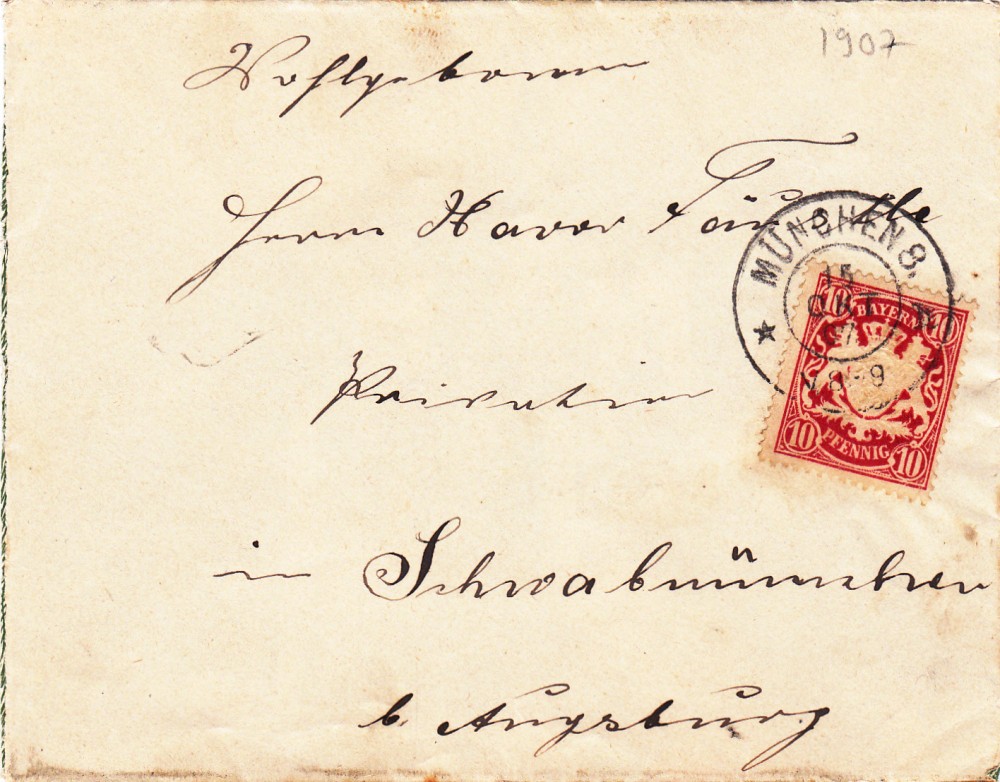 1907
Wohlgeboren
Herrn Xaver
MÜNCHEN 8.
15
OKT
07
8-9
10 10
BAYERN
PFENNIG
10 10
Privatier
in Schwabmünchen
b. Augsburg